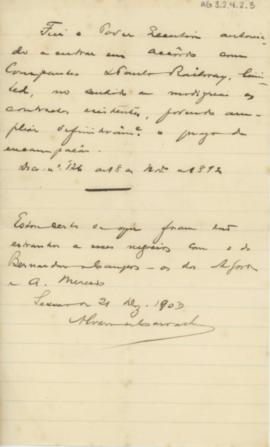 AG 3.2.4.2.3
Fica o Poder Executivo autorisa-
do a entrar em accôrdo com
Companhia S Paulo Railway, Limi-
ted, no sentido a modificar os
contractos existentes, podendo am-
pliar definitivam.te o praso de
encampação.
Dec. n.º 126 de 18 de Nov. de 1892
Estou certo de que foram
estranhos a esses negocios com o de
Bernardino Campos – os dos
e A.
21 Dez. 1900